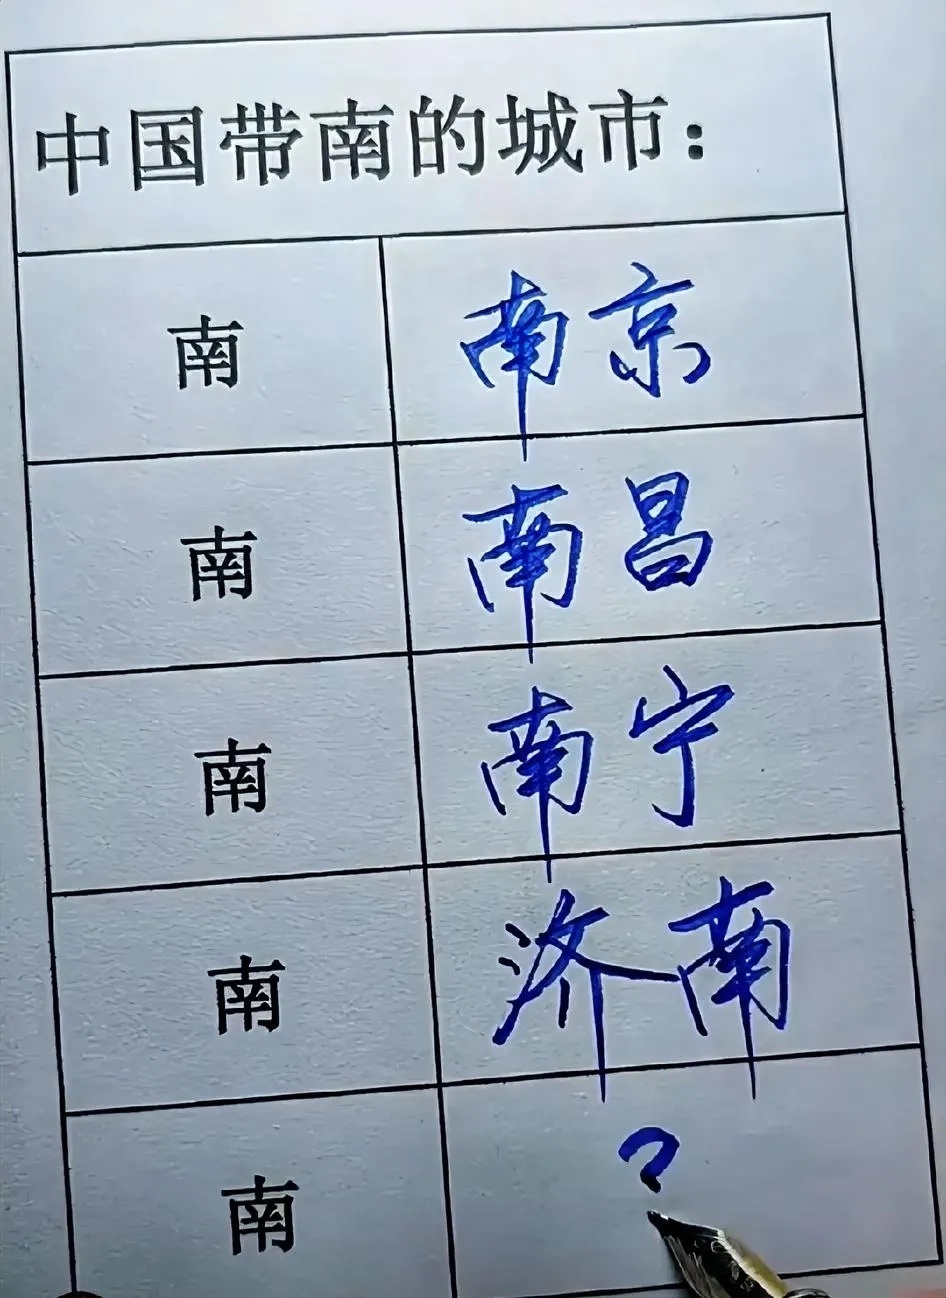 中国带南的城市：
南 南京
南 南昌
南 南宁
南 济南
南 ?